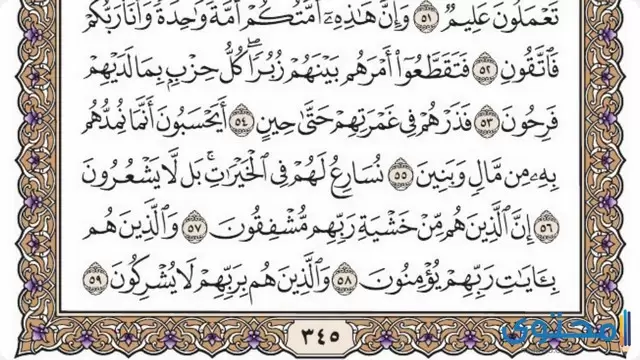 تَعْمَلُونَ عَلِيمٌ ۝٥١ وَإِنَّ هَٰذِهِۦٓ أُمَّتُكُمْ أُمَّةً وَٰحِدَةً وَأَنَا۠ رَبُّكُمْ
فَٱتَّقُونِ ۝٥٢ فَتَقَطَّعُوٓا۟ أَمْرَهُم بَيْنَهُمْ زُبُرًا ۖ كُلُّ حِزْبٍۭ بِمَا لَدَيْهِمْ
فَرِحُونَ ۝٥٣ فَذَرْهُمْ فِى غَمْرَتِهِمْ حَتَّىٰ حِينٍ ۝٥٤ أَيَحْسَبُونَ أَنَّمَا نُمِدُّهُم
بِهِۦ مِن مَّالٍ وَبَنِينَ ۝٥٥ نُسَارِعُ لَهُمْ فِى ٱلْخَيْرَٰتِ ۚ بَل لَّا يَشْعُرُونَ
۝٥٦ إِنَّ ٱلَّذِينَ هُم مِّنْ خَشْيَةِ رَبِّهِم مُّشْفِقُونَ ۝٥٧ وَٱلَّذِينَ هُم
بِـَٔايَٰتِ رَبِّهِمْ يُؤْمِنُونَ ۝٥٨ وَٱلَّذِينَ هُم بِرَبِّهِمْ لَا يُشْرِكُونَ ۝٥٩
٣٤٥
محتوى